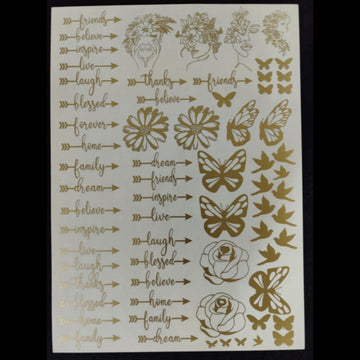 friends
believe
inspire
live
laugh
blessed
forever
home
family
dream
believe
inspire
live
laugh
thanks
blessed
home
family
thanks
friends
believe
dream
friends
inspire
live
laugh
blessed
believe
home
family
dream